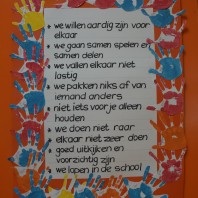 • we willen aardig zijn voor
elkaar
• we gaan samen spelen en
samen delen
• we vallen elkaar niet
lastig
• we pakken niks af van
iemand anders
• niet iets voor je alleen
houden
• we doen niet raar
• elkaar niet zeer doen
• goed uitkijken en
voorzichtig zijn
• we lopen in de school